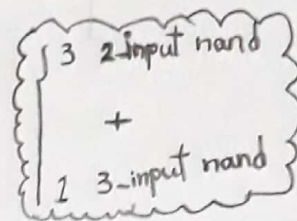 3 2-input nand
+
1 3-input nand